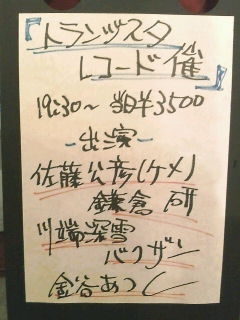 『トランヅスタ
レコード催』
19:30〜 当日¥3500
-出演-
佐藤公彦(ケメ)
鎌倉研
川端深雪
バクザン
金谷あつし